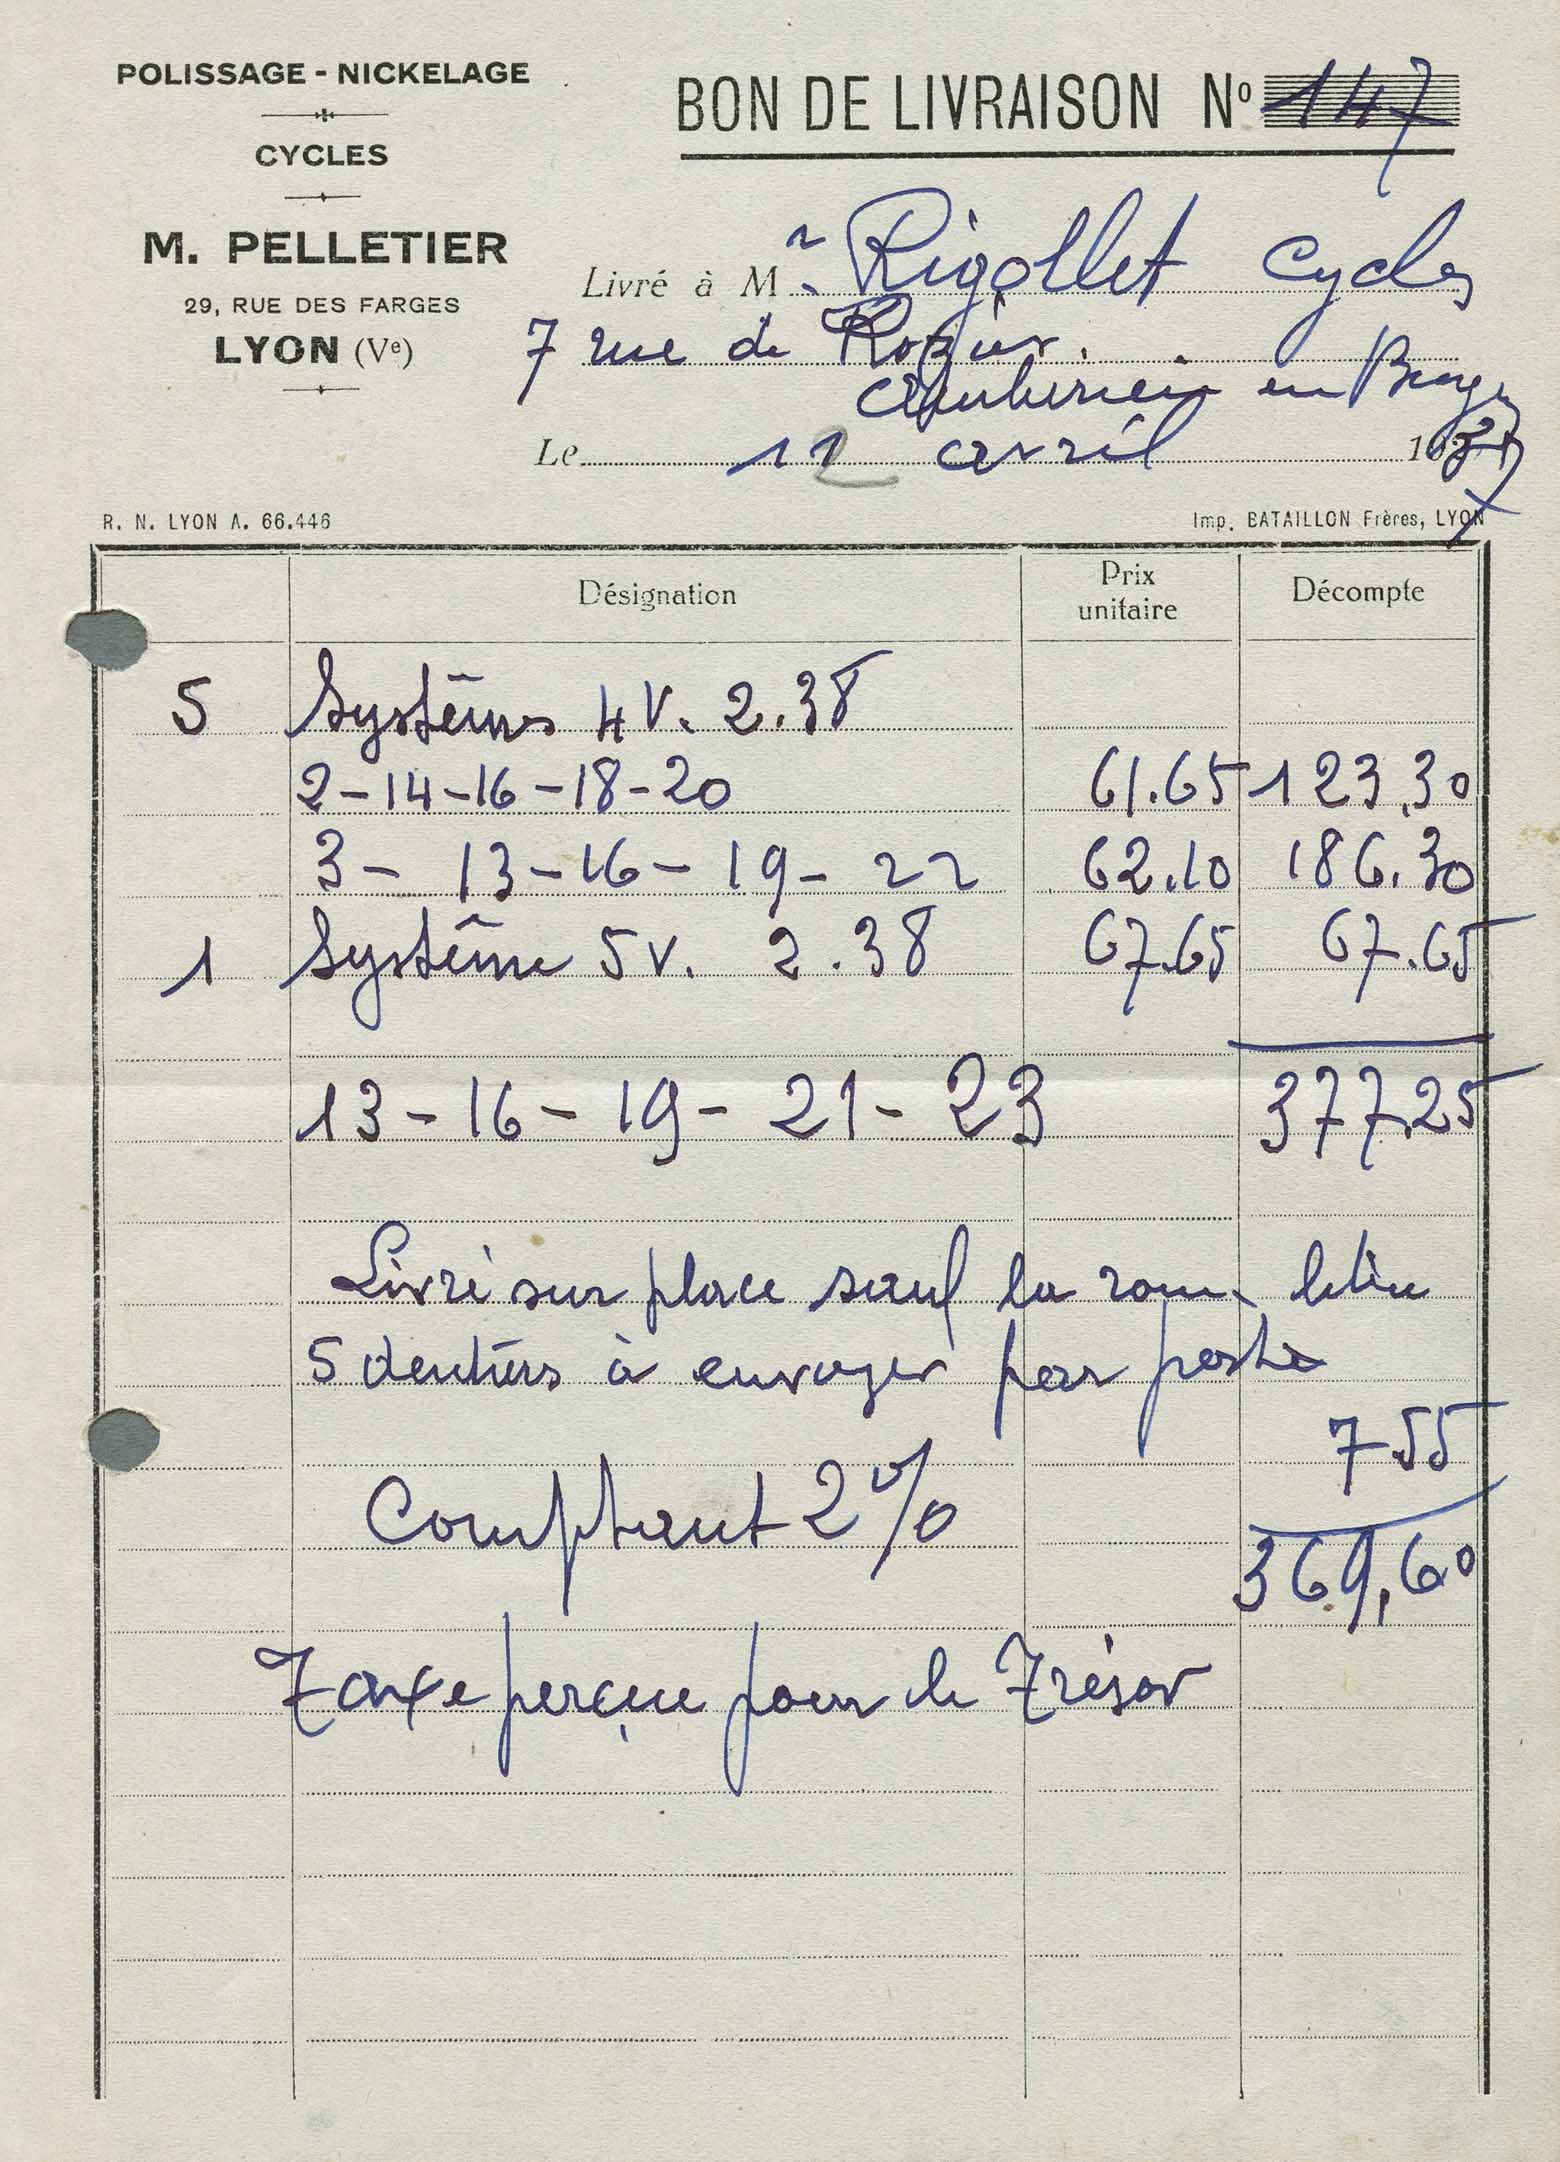 POLISSAGE - NICKELAGE
CYCLES
M. PELLETIER
29, RUE DES FARGES
LYON (Ve)
BON DE LIVRAISON No 147
Livré à Mr Rigollet Cycles
7 rue de
Ambérieu en Bugey
Le 12 avril 19
R. N. LYON A. 66.446
Imp. BATAILLON Frères, LYON
Désignation Prix unitaire Décompte
5 Systèmes 4 V. 2.38
2-14-16-18-20 61.65 123.30
3- 13-16-19-22 62.10 186.30
1 Système 5 V. 2.38 67.65 67.65
13-16-19-21-23 377.25
Livré sur place sauf la roue libre
5 dentures à envoyer par poste
7.55
Comptant 2%
369,60
Taxe perçue pour le Trésor